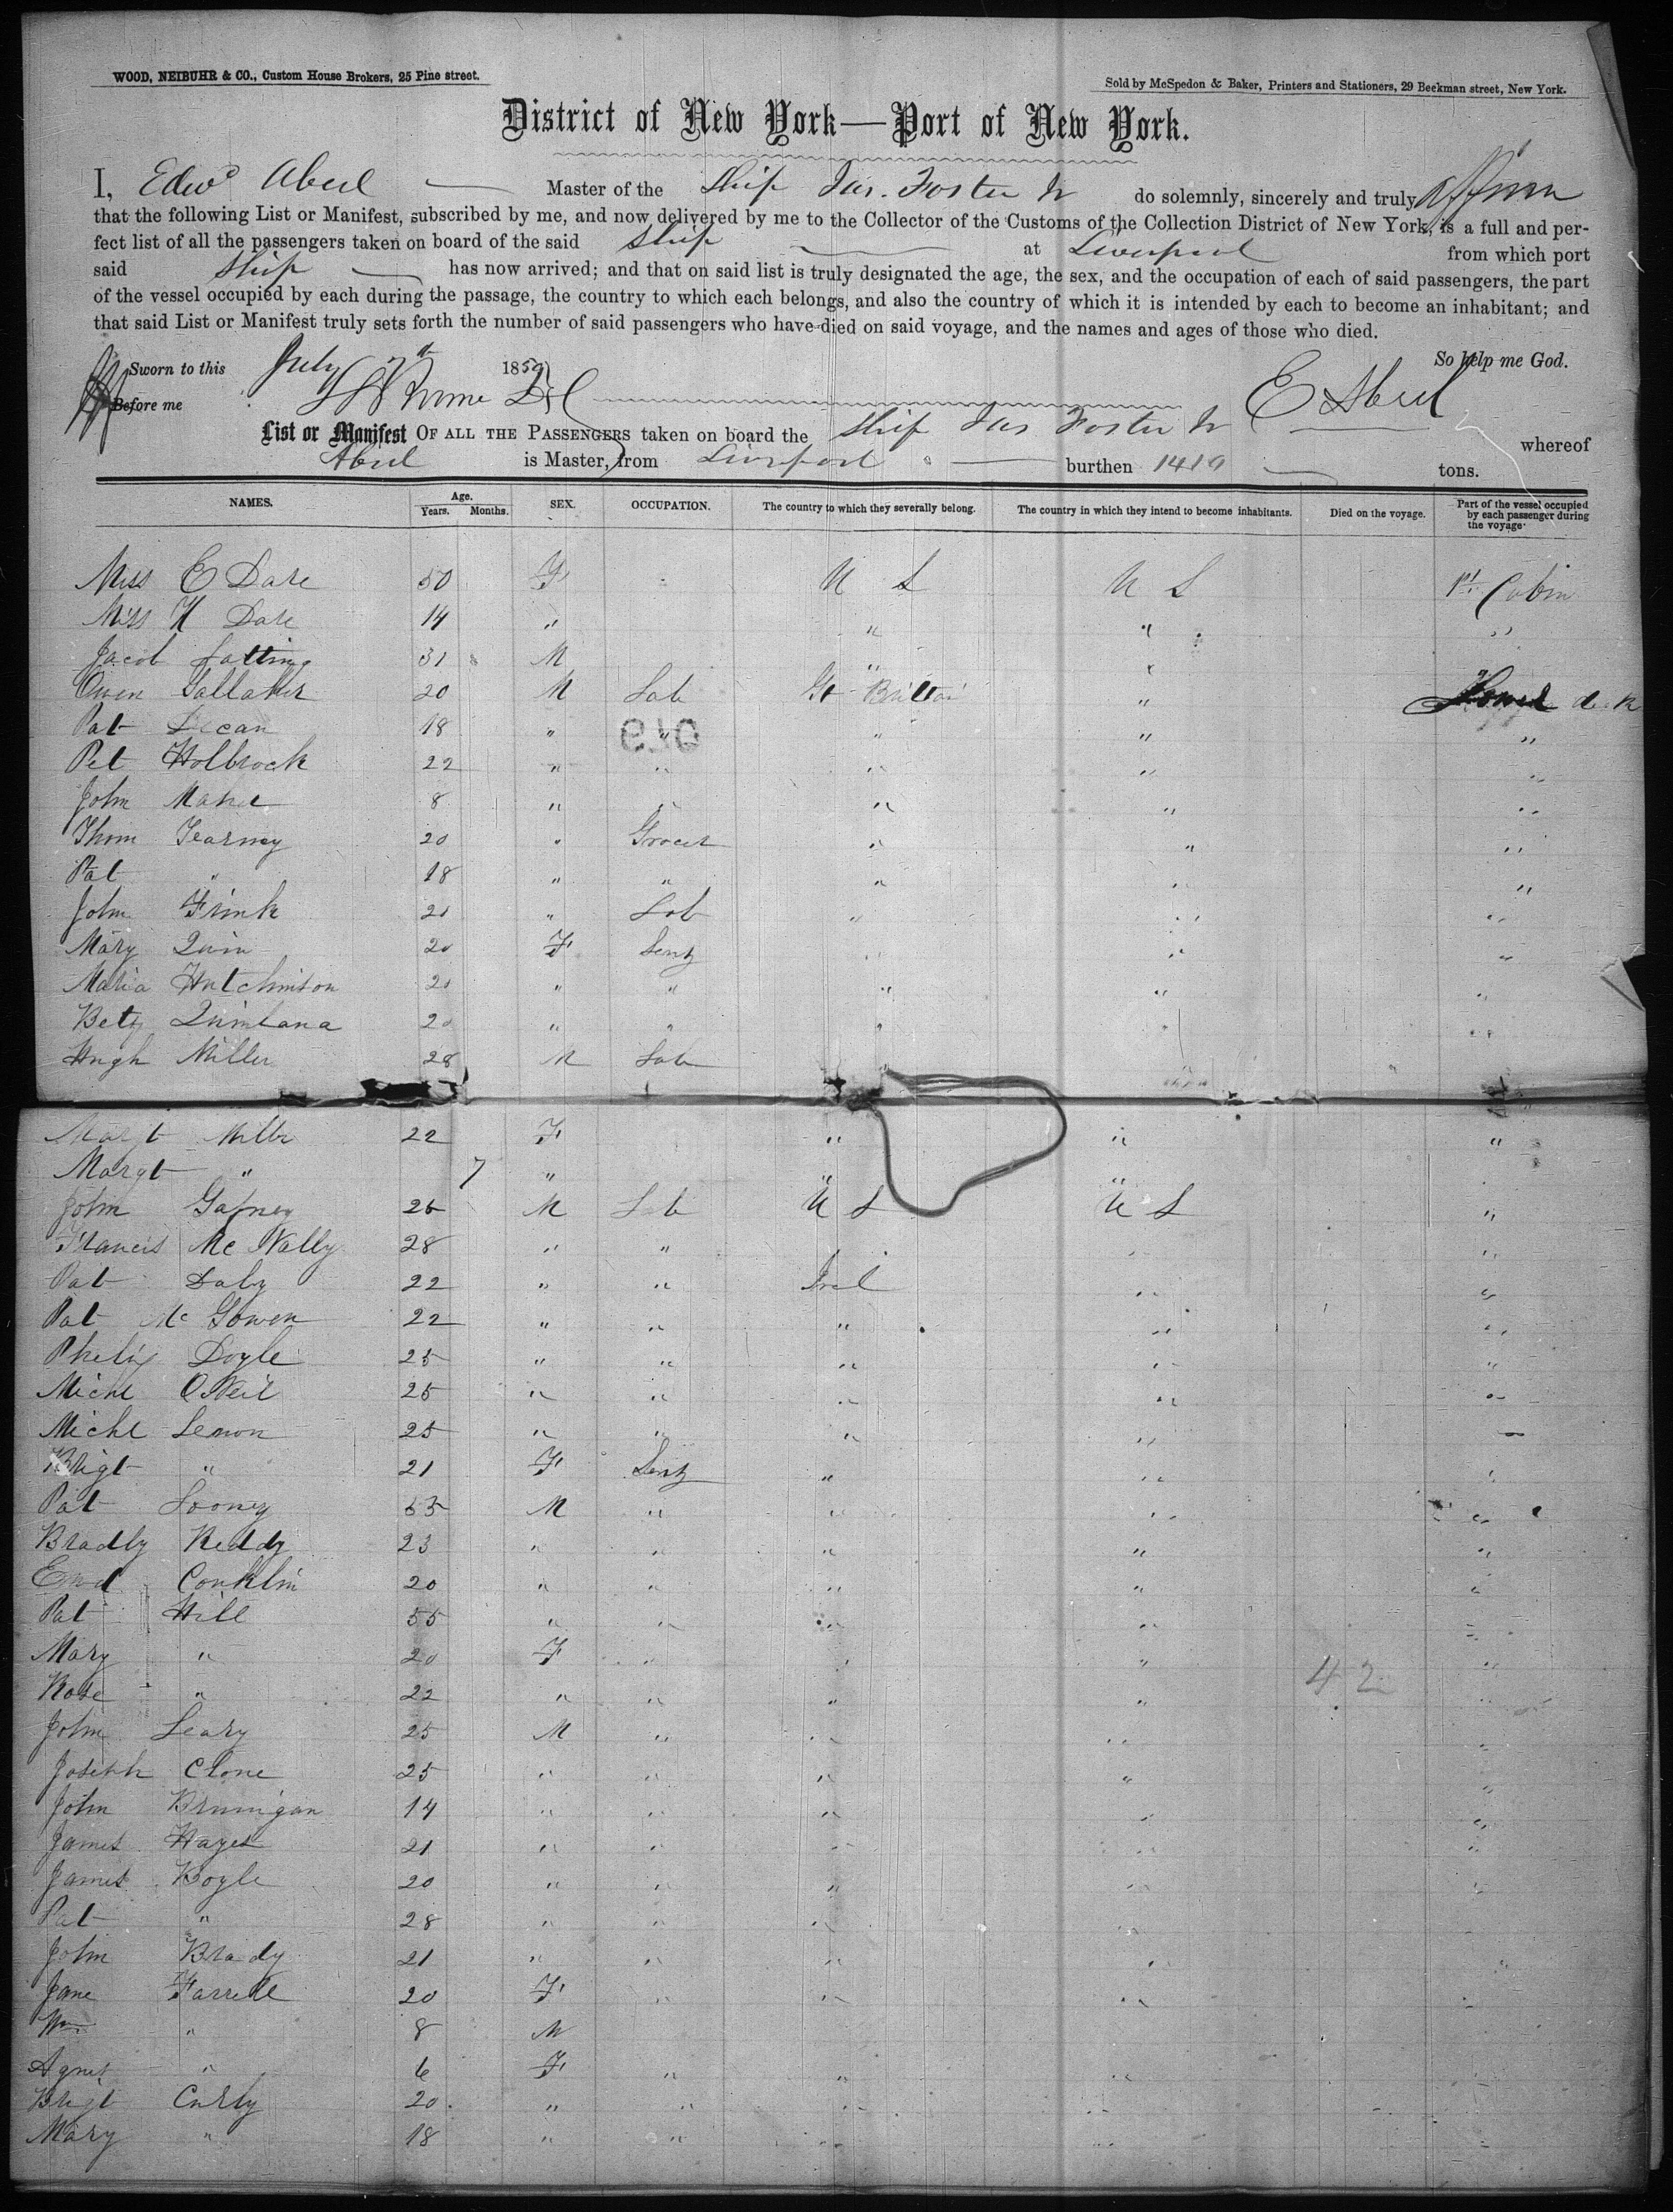 WOOD, NEIBUHR & CO., Custom House Brokers, 25 Pine street.
Sold by McSpedon & Baker, Printers and Stationers, 29 Beekman street, New York.
District of New York—Port of New York.
I, Edwd Abeel Master of the Ship Jas. Foster Jr do solemnly, sincerely and truly affirm
that the following List or Manifest, subscribed by me, and now delivered by me to the Collector of the Customs of the Collection District of New York, is a full and per-
fect list of all the passengers taken on board of the said Ship at Liverpool from which port
said Ship has now arrived; and that on said list is truly designated the age, the sex, and the occupation of each of said passengers, the part
of the vessel occupied by each during the passage, the country to which each belongs, and also the country of which it is intended by each to become an inhabitant; and
that said List or Manifest truly sets forth the number of said passengers who have died on said voyage, and the names and ages of those who died.
So help me God.
Sworn to this July 7th 1859
Before me E Abeel
List or Manifest OF ALL THE PASSENGERS taken on board the Ship Jas Foster Jr whereof
Abeel is Master, from Liverpool burthen 1410 tons.
NAMES. Age. Years. Months. SEX. OCCUPATION. The country to which they severally belong. The country in which they intend to become inhabitants. Died on the voyage. Part of the vessel occupied by each passenger during the voyage.
Miss E Dare 50 F U S U S 1st Cabin
Miss H Dare 14 " " " "
Jacob 31 M " " "
Owen Gallaher 20 M Lab Gt Britain " Lower deck
Pat 18 " " " " "
Pet Holbrock 22 " " " " "
John Maher 8 " " " " "
Thom Kearney 20 " Grocer " " "
Pat " 18 " " " " "
John Frink 20 " Lab " " "
Mary Quin 20 F " " "
Maria Hutchinson 20 " " " " "
Bety Quinlana 20 " " " " "
Hugh Miller 28 M Lab "
Margt Miller 22 F " " "
Margt " 7 " " "
John Gafney 26 M Lab U S U S "
Francis McNally 28 " " " "
Pat Daly 22 " " Irel " "
Pat McGowen 22 " " " " "
Philip Doyle 25 " " " " "
Michl ONeil 25 " " " " "
Michl Lemon 25 " " " " "
Brigt " 21 F " " "
Pat Looney M " " " "
Bradly Reddy 23 " " " " "
Edwd Conklin 20 " " " " "
Pat Hill 55 " " " " "
Mary " 20 F " " " "
Rose " 22 " " " " "
42
John Leary 25 M " " " "
Joseph Clone 25 " " " " "
John Brunigan 14 " " " " "
James Hayes 21 " " " " "
James Boyle 20 " " " " "
Pat " 28 " " " "
John Brady 21 " " " " "
Jane Farrell 20 F " " " "
Wm " 8 M
Agnes " 6 F " " "
Brigt Curly 20 " " " "
Mary " 18 " " " "